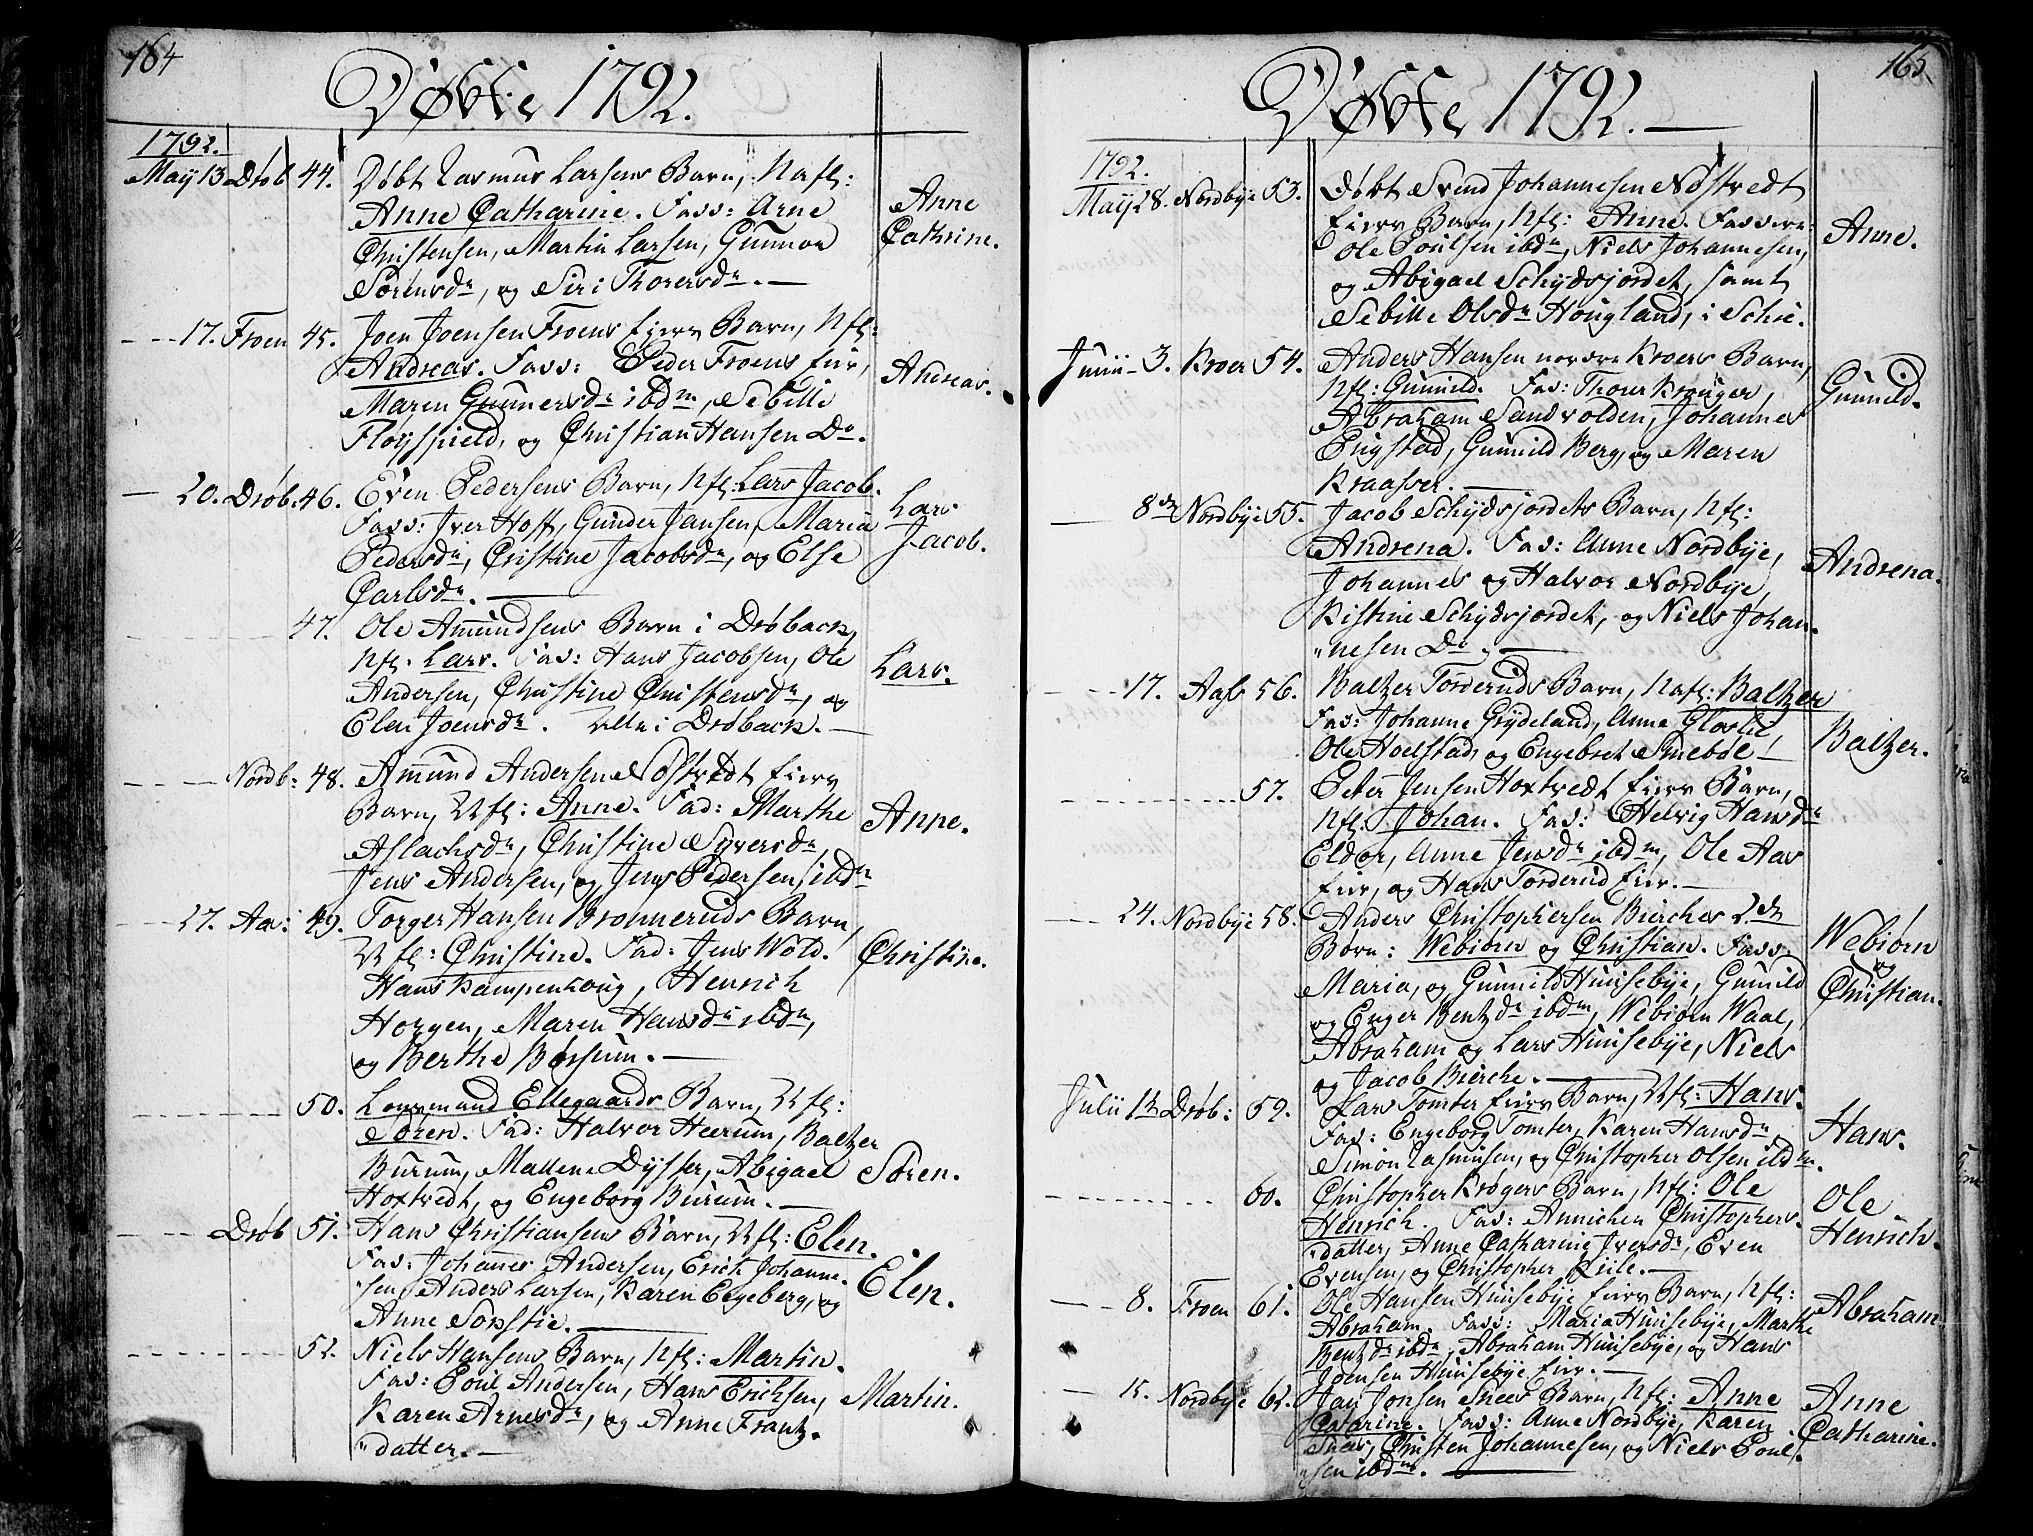 164
Døbte 1792.
1792.
May 13 Drøb 44. Døbt Rasmus Larsens Barn, Nafl:
Anne Catharine. Fass: Arne
Christensen, Martin Larsen, Gunnor
Sørensdr, og Siri Thorersdr. —
Anne
Cathrine.
17. Froen 45. Joen Joensen Froens Eiers Barn, Nfl:
Andreas. Fass: Peder Froens Eier,
Maren Gunnersdr ibdm, Sebille
Floyspield, og Christian Hansen Do.
Andreas.
20. Drøb. 46. Even Pedersens Barn, Nfl: Lars Jacob.
Fass: Iver Hoff, Gunder Jansen, Maria
Pedersdr, Christine Jacobsdr, og Else
Carlsdr. —
Lars
Jacob.
47. Ole Amundsens Barn i Drøback,
Nfl. Lars. Fas: Hans Jacobsen, Ole
Andersen, Christine Christensdr, og
Elen Joensdr. Alle i Drøback. —
Lars.
Nordb: 48. Amund Andersen Nøstvedt Eiers
Barn, Nfl: Anne. Fad: Marthe
Aslachsdr, Christine Syversdr,
Jens Andersen, og Jens Pedersen, ibdm
Anne.
27. Aas: 49. Torger Hansen Brønneruds Barn,
Nfl: Christine. Fad: Jens Wold.
Hans Kampenhoug, Henrich
Horgen, Maren Hansdr ibdm,
og Berthe Børsum. —
Christine.
50. Lougmand Ellegaards Barn, Nfl:
Søren. Fad: Halvor Heerum, Baltzer
Burum, Mallene Dysser, Abigael
Hoxtvedt, og Engeborg Burum. —
Søren.
Drøb 51. Hans Christiansens Barn, Nfl: Elen.
Fas: Johannes Andersen, Erich Johanne-
sen, Anders Larsen, Karen Engeberg, og
Anne Sonstie. —
Elen.
52. Niels Hansens Barn, Nfl: Martin.
Fas: Poul Andersen, Hans Erichsen,
Karen Arnesdr, og Anne Frantz-
datter. —
Martin.
165
Døbte 1792. —
1792.
May 28. Nordbye 53. Døbt Svend Johannesen Nøstvedt
Eiers Barn, Nfl: Anne. Fassere:
Ole Poulsen ibdm, Niels Johannesen,
og Abigael Schydsjordet, samt
Sebille Olsdr Hougland, i Schie.
Anne.
Junii 3. Kroer 54. Anders Hansen nordre Kroers Barn,
Nfl: Gunnild. Fas: Thorer Krauger,
Abraham Sandvolden, Johannes
Engstad, Gunnild Berg, og Maren
Kraasser. —
Gunnild.
8de Nordbye 55. Jacob Schydsjordets Barn, Nfl:
Andrena. Fas: Anne Nordbye,
Johannes og Halvor Nordbye,
Kistine Schydsjordet, og Niels Johan-
nesen Do. —
Andrena.
17. Aas 56. Baltzer Torderuds Barn, Nafl: Baltzer
Fas: Johanne Grydeland, Anne Glaslie
Ole Holstad, og Engebret Smebøl —
Baltzer.
57. Peter Jensen Hoxtvedt Eiers Barn,
Nfl: Johan. Fas: Helvig Hansdr
Eldor, Anne Jensdr ibdm, Ole Aas
Eier, og Hans Torderud Eier. —
24. Nordbye 58. Anders Christophersen Bierches 2de
Børn: Webiørn og Christian. Fass:
Maria, og Gunnild Huusebye, Gunild
og Enger Bentzdr ibdm, Webiørn Waal,
Abraham og Lars Huusebye, Niels
og Jacob Bierche. —
Webiørn
og
Christian.
Julii 1te Drøb: 59. Lars Tomter Eiers Barn, Nfl: Hans.
Fas: Engeborg Tomter, Karen Hansdr,
Simon Rasmusen, og Christopher Olsen ibdm.
Hans.
60. Christopher Krøgers Barn, Nfl: Ole
Henrich. Fas: Annichen Christophers-
datter, Anne Catharine Iversdr, Even
Evensen, og Christopher Zeile. —
Ole
Henrich.
8. Froen 61. Ole Hansen Huusebye Eiers Barn, Nfl:
Abraham. Fass: Maria Huusebye, Marthe
Bentzdr ibdm, Abraham Huusebye, og Hans
Joensen Huusebye Eier. —
Abraham.
15. Nordbye 62. Jan Jonsen Snees Barn, Nfl: Anne
Catarine. Fass: Anne Nordbye, Karen
Snees, Christen Johannesen, og Niels Poul-
sen ibdm. —
Anne
Catharine.